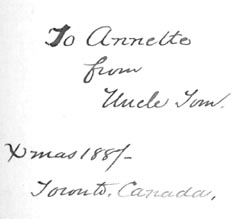 To Annette
from
Uncle Tom.
Xmas 1881-
Toronto, Canada.